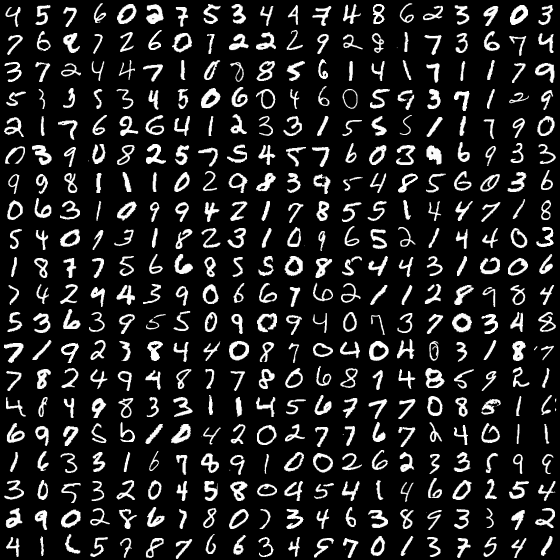 9 5 7 6 0 2 7 5 3 4 4 7 4 8 6 2 3 9 0 3
7 6 8 7 2 6 0 7 2 2 2 9 2 8 1 7 3 6 7 4
3 7 2 4 4 7 1 0 8 8 5 6 1 4 1 7 1 1 7 9
5 3 3 5 3 4 5 0 6 0 4 6 0 5 9 3 7 1 2 9
2 1 7 6 2 6 4 1 2 3 3 1 5 5 5 1 1 7 9 0
0 3 9 0 8 2 5 7 5 4 5 7 6 0 3 9 6 9 3 3
9 9 8 1 1 1 0 2 9 8 3 9 5 4 8 5 6 0 3 6
0 6 3 1 0 9 9 4 2 1 7 8 5 5 1 4 4 7 1 8
5 4 0 7 3 1 8 2 3 1 0 9 6 5 2 1 4 4 0 3
1 8 7 7 5 6 6 8 5 5 0 8 5 4 4 3 1 0 0 6
7 4 2 9 4 3 9 0 6 6 7 6 2 1 1 2 8 9 8 4
5 3 6 3 9 5 5 0 9 0 9 4 0 7 3 7 0 3 4 8
7 1 9 2 3 8 4 4 0 8 7 0 4 0 4 0 3 1 8 7
7 8 2 4 9 4 8 7 7 8 0 6 8 7 4 8 5 9 2 1
4 8 4 9 8 3 3 1 1 4 5 6 7 7 7 0 8 5 1 6
6 9 7 5 6 1 0 4 2 0 2 7 7 6 7 2 4 0 1 1
1 6 3 3 1 6 7 8 9 1 0 0 2 6 2 3 3 5 9 9
3 0 5 3 2 0 4 5 8 0 4 5 4 1 4 6 0 2 5 4
2 9 0 2 8 6 7 8 0 7 3 4 6 3 8 9 3 3 9 2
4 1 6 5 7 8 7 6 6 3 4 9 7 0 1 3 7 5 4 7